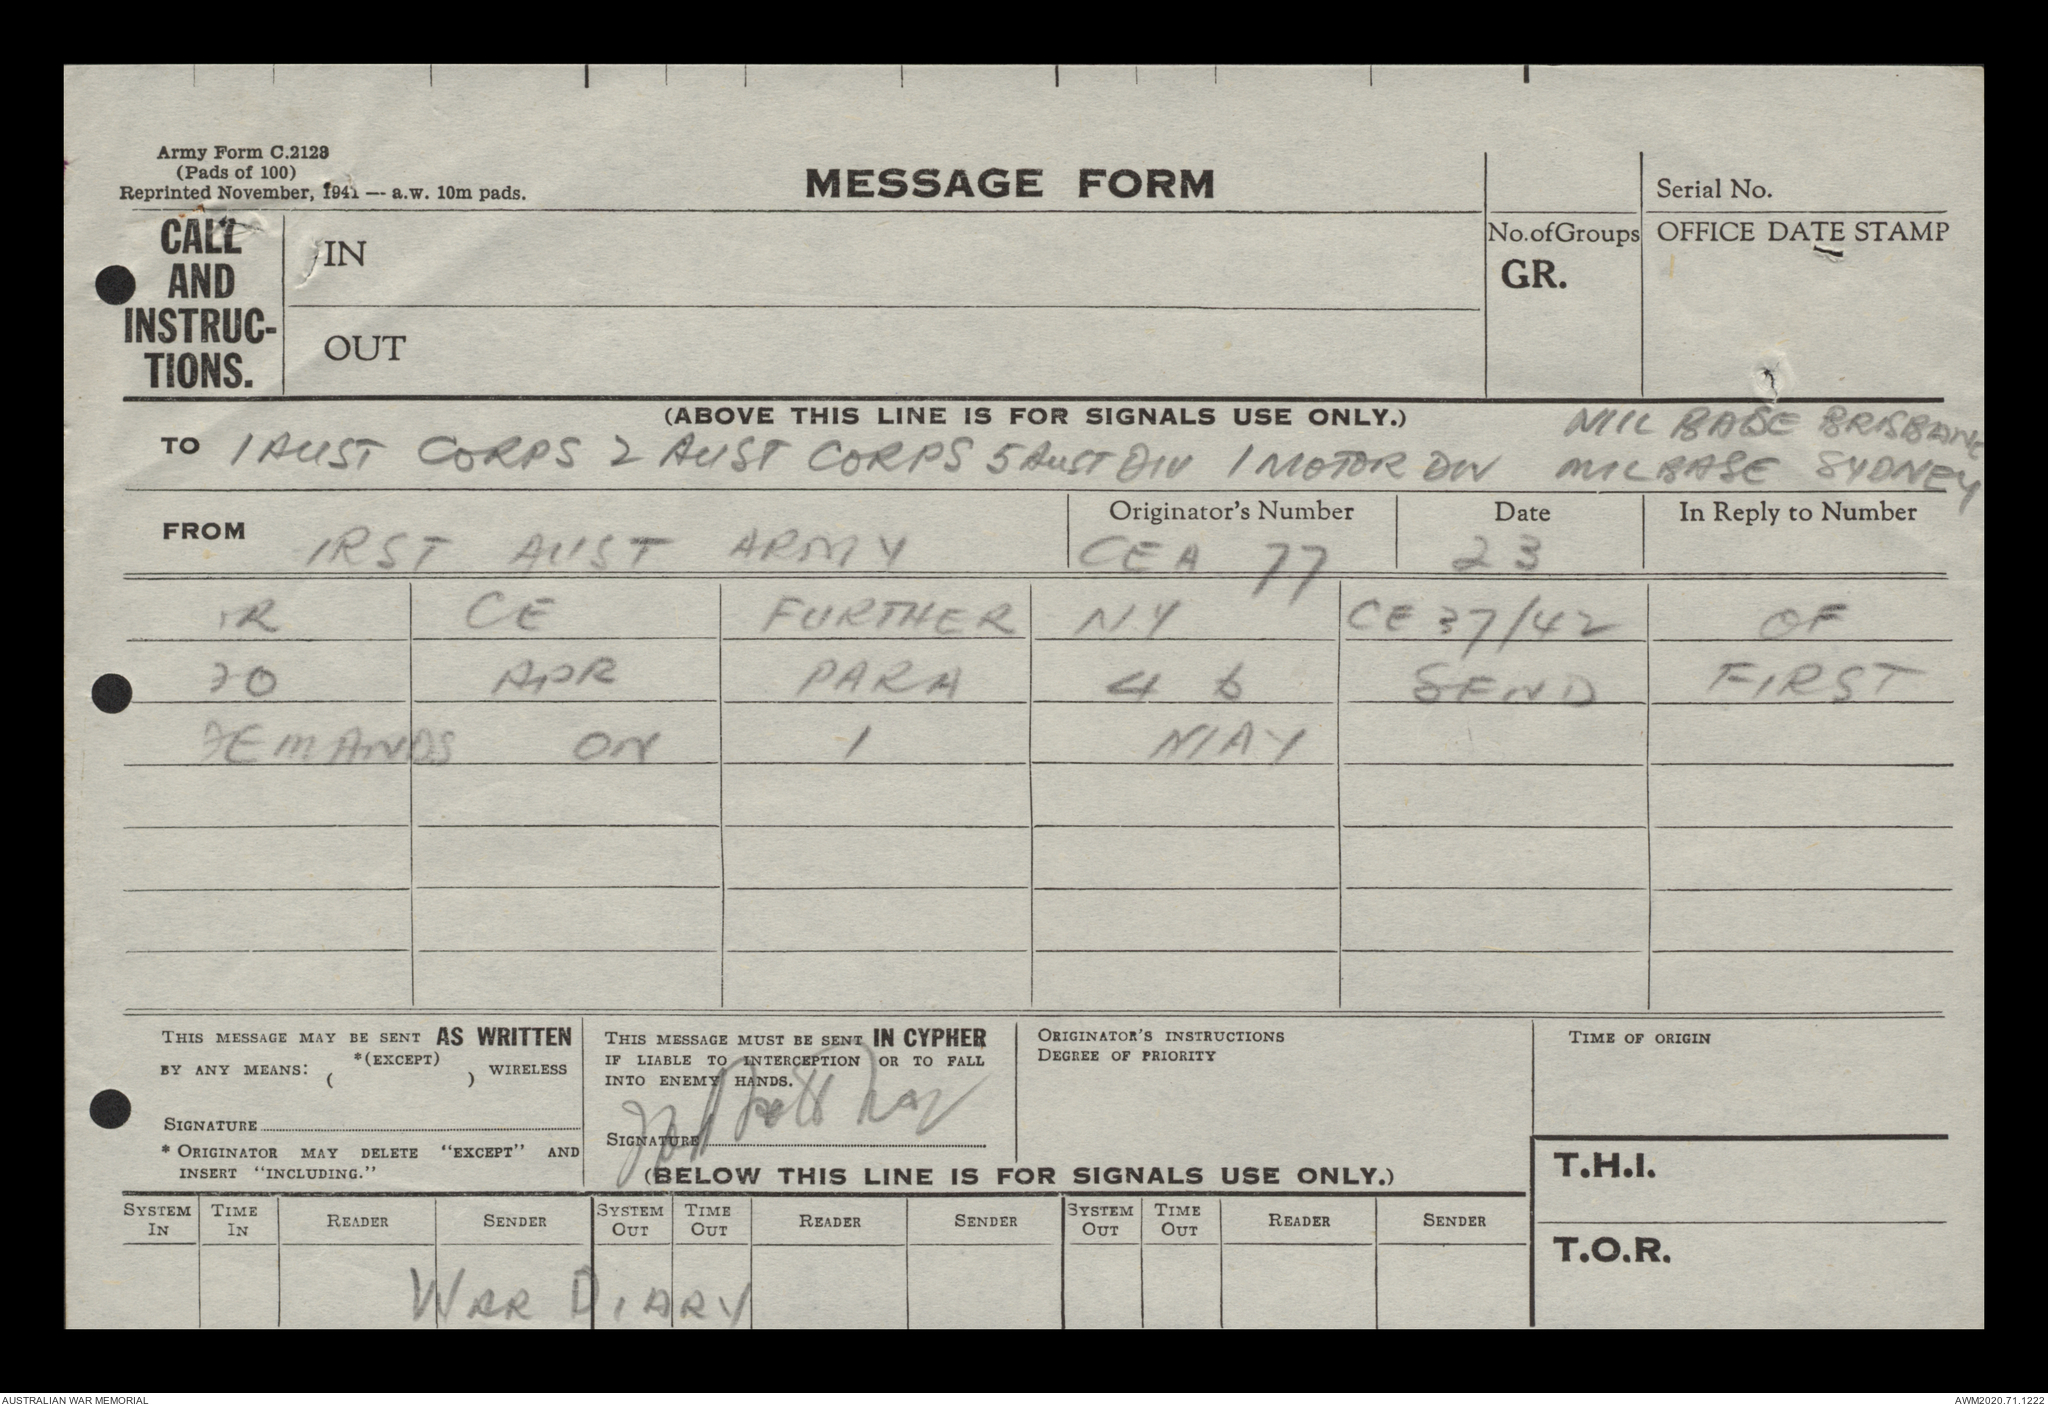 Army Form C.2128
(Pads of 100)
Reprinted November, 1941 — a.w. 10m pads.
MESSAGE FORM
Serial No.
CALL AND INSTRUC-TIONS.
IN
OUT
No. of Groups
GR.
OFFICE DATE STAMP
(ABOVE THIS LINE IS FOR SIGNALS USE ONLY.)
MIL BASE BRISBANE
TO 1 AUST CORPS 2 AUST CORPS 5 AUST DIV 1 MOTOR DIV MIL BASE SYDNEY
FROM IRST AUST ARMY
Originator's Number CEA 77
Date 23
In Reply to Number
CE FURTHER MY CE 37/42 OF
20 APR PARA 4 b SEND FIRST
DEMANDS ON 1 MAY
THIS MESSAGE MAY BE SENT AS WRITTEN
BY ANY MEANS: *(EXCEPT) ( ) WIRELESS
SIGNATURE
* ORIGINATOR MAY DELETE "EXCEPT" AND
INSERT "INCLUDING."
THIS MESSAGE MUST BE SENT IN CYPHER
IF LIABLE TO INTERCEPTION OR TO FALL
INTO ENEMY HANDS.
SIGNATURE
ORIGINATOR'S INSTRUCTIONS
DEGREE OF PRIORITY
TIME OF ORIGIN
(BELOW THIS LINE IS FOR SIGNALS USE ONLY.)
T.H.I.
T.O.R.
SYSTEM IN TIME IN READER SENDER SYSTEM OUT TIME OUT READER SENDER SYSTEM OUT TIME OUT READER SENDER
WAR DIARY
AUSTRALIAN WAR MEMORIAL
AWM2020.71.1222